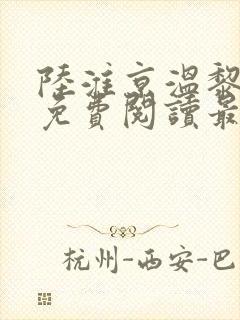 陸淮京溫黎
免費閱讀最
杭州-西安-巴